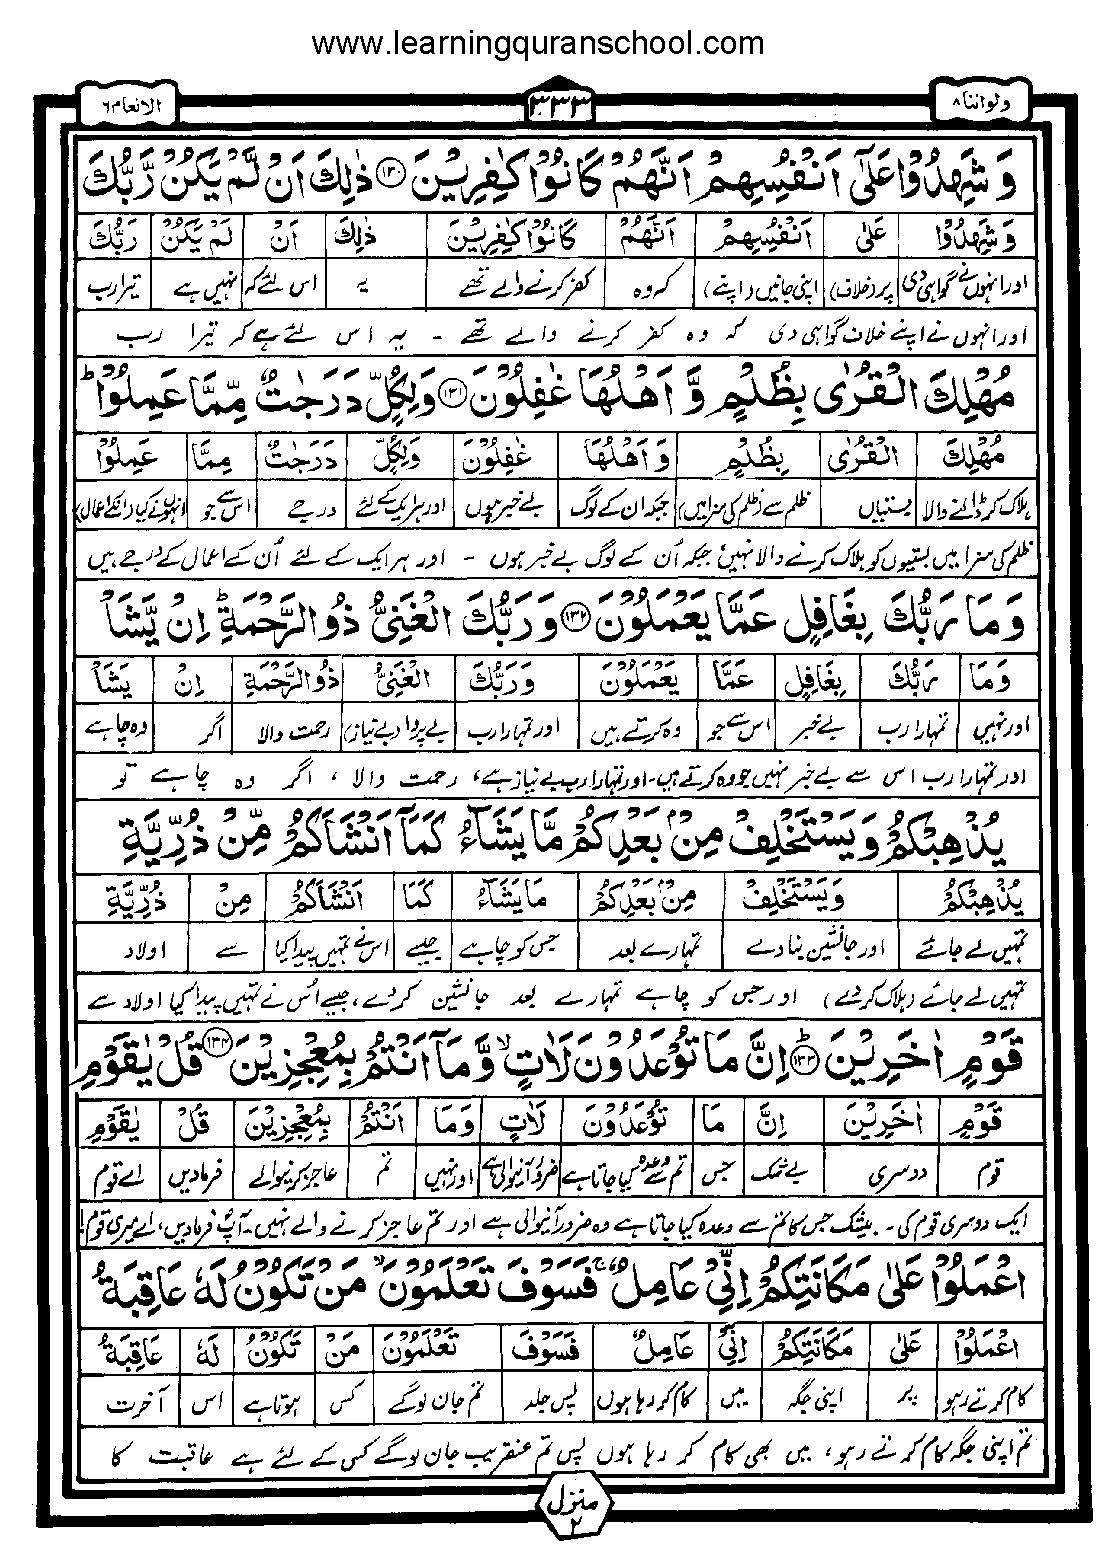 www.learningquranschool.com
ولواننا ۸ ۳۳۳ الانعام ٦
وَ شَهِدُوْا عَلٰۤى اَنْفُسِهِمْ اَنَّهُمْ كَانُوْا كٰفِرِيْنَ ۱۳۰ ذٰلِكَ اَنْ لَّمْ يَكُنْ رَّبُّكَ
وَ شَهِدُوْا عَلٰى اَنْفُسِهِمْ اَنَّهُمْ كَانُوْا كٰفِرِيْنَ ذٰلِكَ اَنْ لَمْ يَكُنْ رَبُّكَ
اور انہوں نے گواہی دی پر (خلاف) اپنی جانیں (اپنے) کہ وہ کفر کرنے والے تھے یہ اس لئے کہ نہیں ہے تیرا رب
اور انہوں نے اپنے خلاف گواہی دی کہ وہ کفر کرنے والے تھے - یہ اس لئے ہے کہ تیرا رب
مُهْلِكَ الْقُرٰى بِظُلْمٍ وَّ اَهْلُهَا غٰفِلُوْنَ ۱۳۱ وَلِكُلٍّ دَرَجٰتٌ مِّمَّا عَمِلُوْا ؕ
مُهْلِكَ الْقُرٰى بِظُلْمٍ وَ اَهْلُهَا غٰفِلُوْنَ وَلِكُلٍّ دَرَجٰتٌ مِمَّا عَمِلُوْا
ہلاک کر ڈالنے والا بستیاں ظلم سے (ظلم کی سزا میں) جبکہ ان کے لوگ بے خبر ہوں اور ہر ایک کے لئے درجے اس سے جو انہوں نے کیا (انکے اعمال)
ظلم کی سزا میں بستیوں کو ہلاک کرنے والا نہیں جبکہ اُن کے لوگ بے خبر ہوں - اور ہر ایک کے لئے اُن کے اعمال کے درجے ہیں
وَ مَا رَبُّكَ بِغَافِلٍ عَمَّا يَعْمَلُوْنَ ۱۳۲ وَ رَبُّكَ الْغَنِىُّ ذُو الرَّحْمَةِ ؕ اِنْ يَّشَاْ
وَ مَا رَبُّكَ بِغَافِلٍ عَمَّا يَعْمَلُوْنَ وَرَبُّكَ الْغَنِىُّ ذُو الرَّحْمَةِ اِنْ يَشَاْ
اور نہیں تمہارا رب بے خبر اس سے جو وہ کرتے ہیں اور تمہارا رب بے پروا (بے نیاز) رحمت والا اگر وہ چاہے
اور تمہارا رب اس سے بے خبر نہیں جو وہ کرتے ہیں - اور تمہارا رب بے نیاز ہے، رحمت والا، اگر وہ چاہے تو
يُذْهِبْكُمْ وَ يَسْتَخْلِفْ مِنْۢ بَعْدِكُمْ مَّا يَشَآءُ كَمَاۤ اَنْشَاَكُمْ مِّنْ ذُرِّيَّةِ
يُذْهِبْكُمْ وَيَسْتَخْلِفْ مِنْۢ بَعْدِكُمْ مَا يَشَآءُ كَمَا اَنْشَاَكُمْ مِنْ ذُرِّيَّةِ
تمہیں لے جائے اور جانشین بنا دے تمہارے بعد جس کو چاہے جیسے اس نے تمہیں پیدا کیا سے اولاد
تمہیں لے جائے (ہلاک کر دے) اور جس کو چاہے تمہارے بعد جانشین کر دے، جیسے اُس نے تمہیں پیدا کیا اولاد سے
قَوْمٍ اٰخَرِيْنَ ؕ ۱۳۳ اِنَّ مَا تُوْعَدُوْنَ لَاٰتٍ ۙ وَّ مَاۤ اَنْتُمْ بِمُعْجِزِيْنَ ۱۳۴ قُلْ يٰقَوْمِ
قَوْمٍ اٰخَرِيْنَ اِنَّ مَا تُوْعَدُوْنَ لَاٰتٍ وَ مَا اَنْتُمْ بِمُعْجِزِيْنَ قُلْ يٰقَوْمِ
قوم دوسری بے شک جس تم سے وعدہ کیا جاتا ہے ضرور آنیوالی ہے اور نہیں تم عاجز کرنیوالے فرما دیں اے قوم
ایک دوسری قوم کی - بیشک جس کا تم سے وعدہ کیا جاتا ہے وہ ضرور آنیوالی ہے اور تم عاجز کرنے والے نہیں - آپ فرما دیں، اے میری قوم!
اعْمَلُوْا عَلٰى مَكَانَتِكُمْ اِنِّىْ عَامِلٌ ۚ فَسَوْفَ تَعْلَمُوْنَ ۙ مَنْ تَكُوْنُ لَهٗ عَاقِبَةُ
اعْمَلُوْا عَلٰى مَكَانَتِكُمْ اِنِّىْ عَامِلٌ فَسَوْفَ تَعْلَمُوْنَ مَنْ تَكُوْنُ لَهٗ عَاقِبَةُ
کام کرتے رہو پر اپنی جگہ میں کام کر رہا ہوں پس جلد تم جان لوگے کس ہوتا ہے اس آخرت
تم اپنی جگہ کام کرتے رہو، میں بھی کام کر رہا ہوں پس تم عنقریب جان لوگے کس کے لئے ہے عاقبت کا
منزل ۲